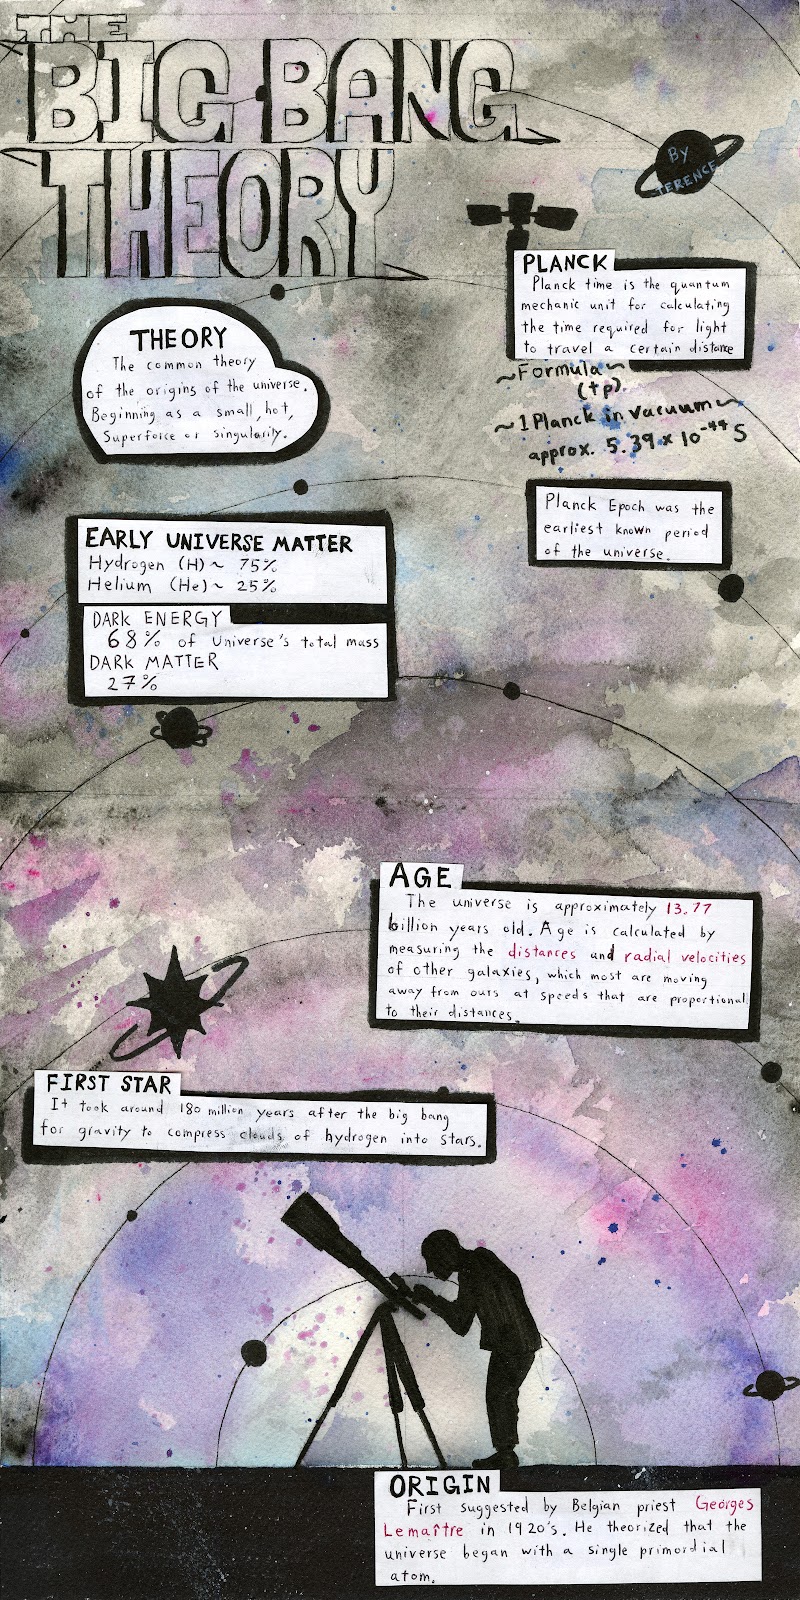 THE
BIG BANG
THEORY
BY
TERENCE
PLANCK
Planck time is the quantum
mechanic unit for calculating
the time required for light
to travel a certain distance
~Formula~
(tp)
~1 Planck in vacuum~
approx. 5.39 x 10⁻⁴⁴ S
THEORY
The common theory
of the origins of the universe.
Beginning as a small, hot,
Superforce or singularity.
Planck Epoch was the
earliest known period
of the universe.
EARLY UNIVERSE MATTER
Hydrogen (H) ~ 75%
Helium (He) ~ 25%
DARK ENERGY
68% of universe's total mass
DARK MATTER
27%
AGE
The universe is approximately 13.77
billion years old. Age is calculated by
measuring the distances and radial velocities
of other galaxies, which most are moving
away from ours at speeds that are proportional
to their distances.
FIRST STAR
It took around 180 million years after the big bang
for gravity to compress clouds of hydrogen into stars.
ORIGIN
First suggested by Belgian priest Georges
Lemaître in 1920's. He theorized that the
universe began with a single primordial
atom.